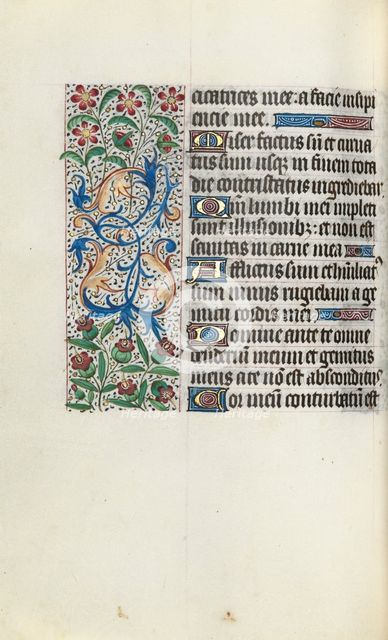 cicatrices mee: a facie insipi
encie mee.
Miser factus sū et curua
tus sum usq; in finem tota
die contristatus ingrediebar
Qm̄ lumbi mei impleti
sunt illusionib;: et non est
sanitas in carne mea
Afflictus sum et humiliat᷒
sum nimis rugiebam a ge
mitu cordis mei
Domine ante te omne
desiderium meum et gemitus
meus a te nō est absconditus
Cor meū conturbatū est
heritage